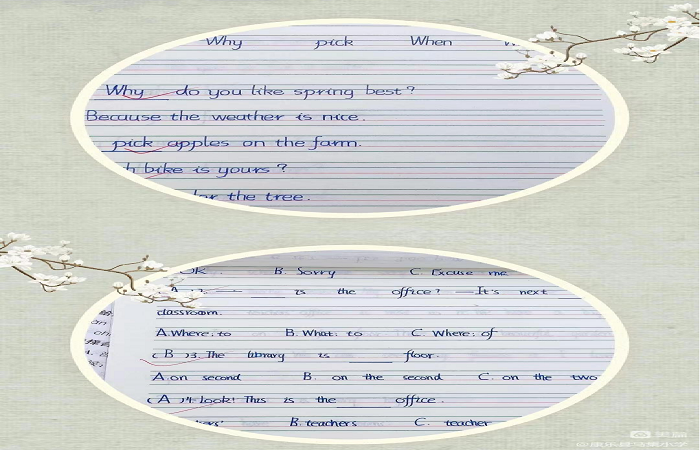 Why pick When
Why do you like spring best?
Because the weather is nice.
pick apples on the farm.
bike is yours?
the tree.
Ok. B. Sorry C. Excuse me
A is the office? —It's next
classroom.
A.Where; to B. What; to C. Where; of
(B)3. The library is ____ floor.
A. on second B. on the second C. on the two
(A)4. look! This is the ____ office.
B. teachers C. teacher